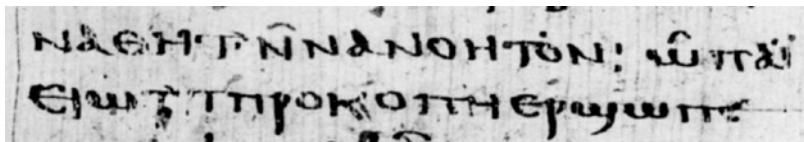 ⲛⲁⲑⲏⲧ ⲛ̅ⲛⲁⲛⲟⲏⲧⲟⲛ: ⲱ̂ ⲡⲁⲓ̈
ⲉⲓⲱⲧ ⲧⲡⲣⲟⲕⲟⲡⲏ ⲉⲣϣⲱⲡⲉ